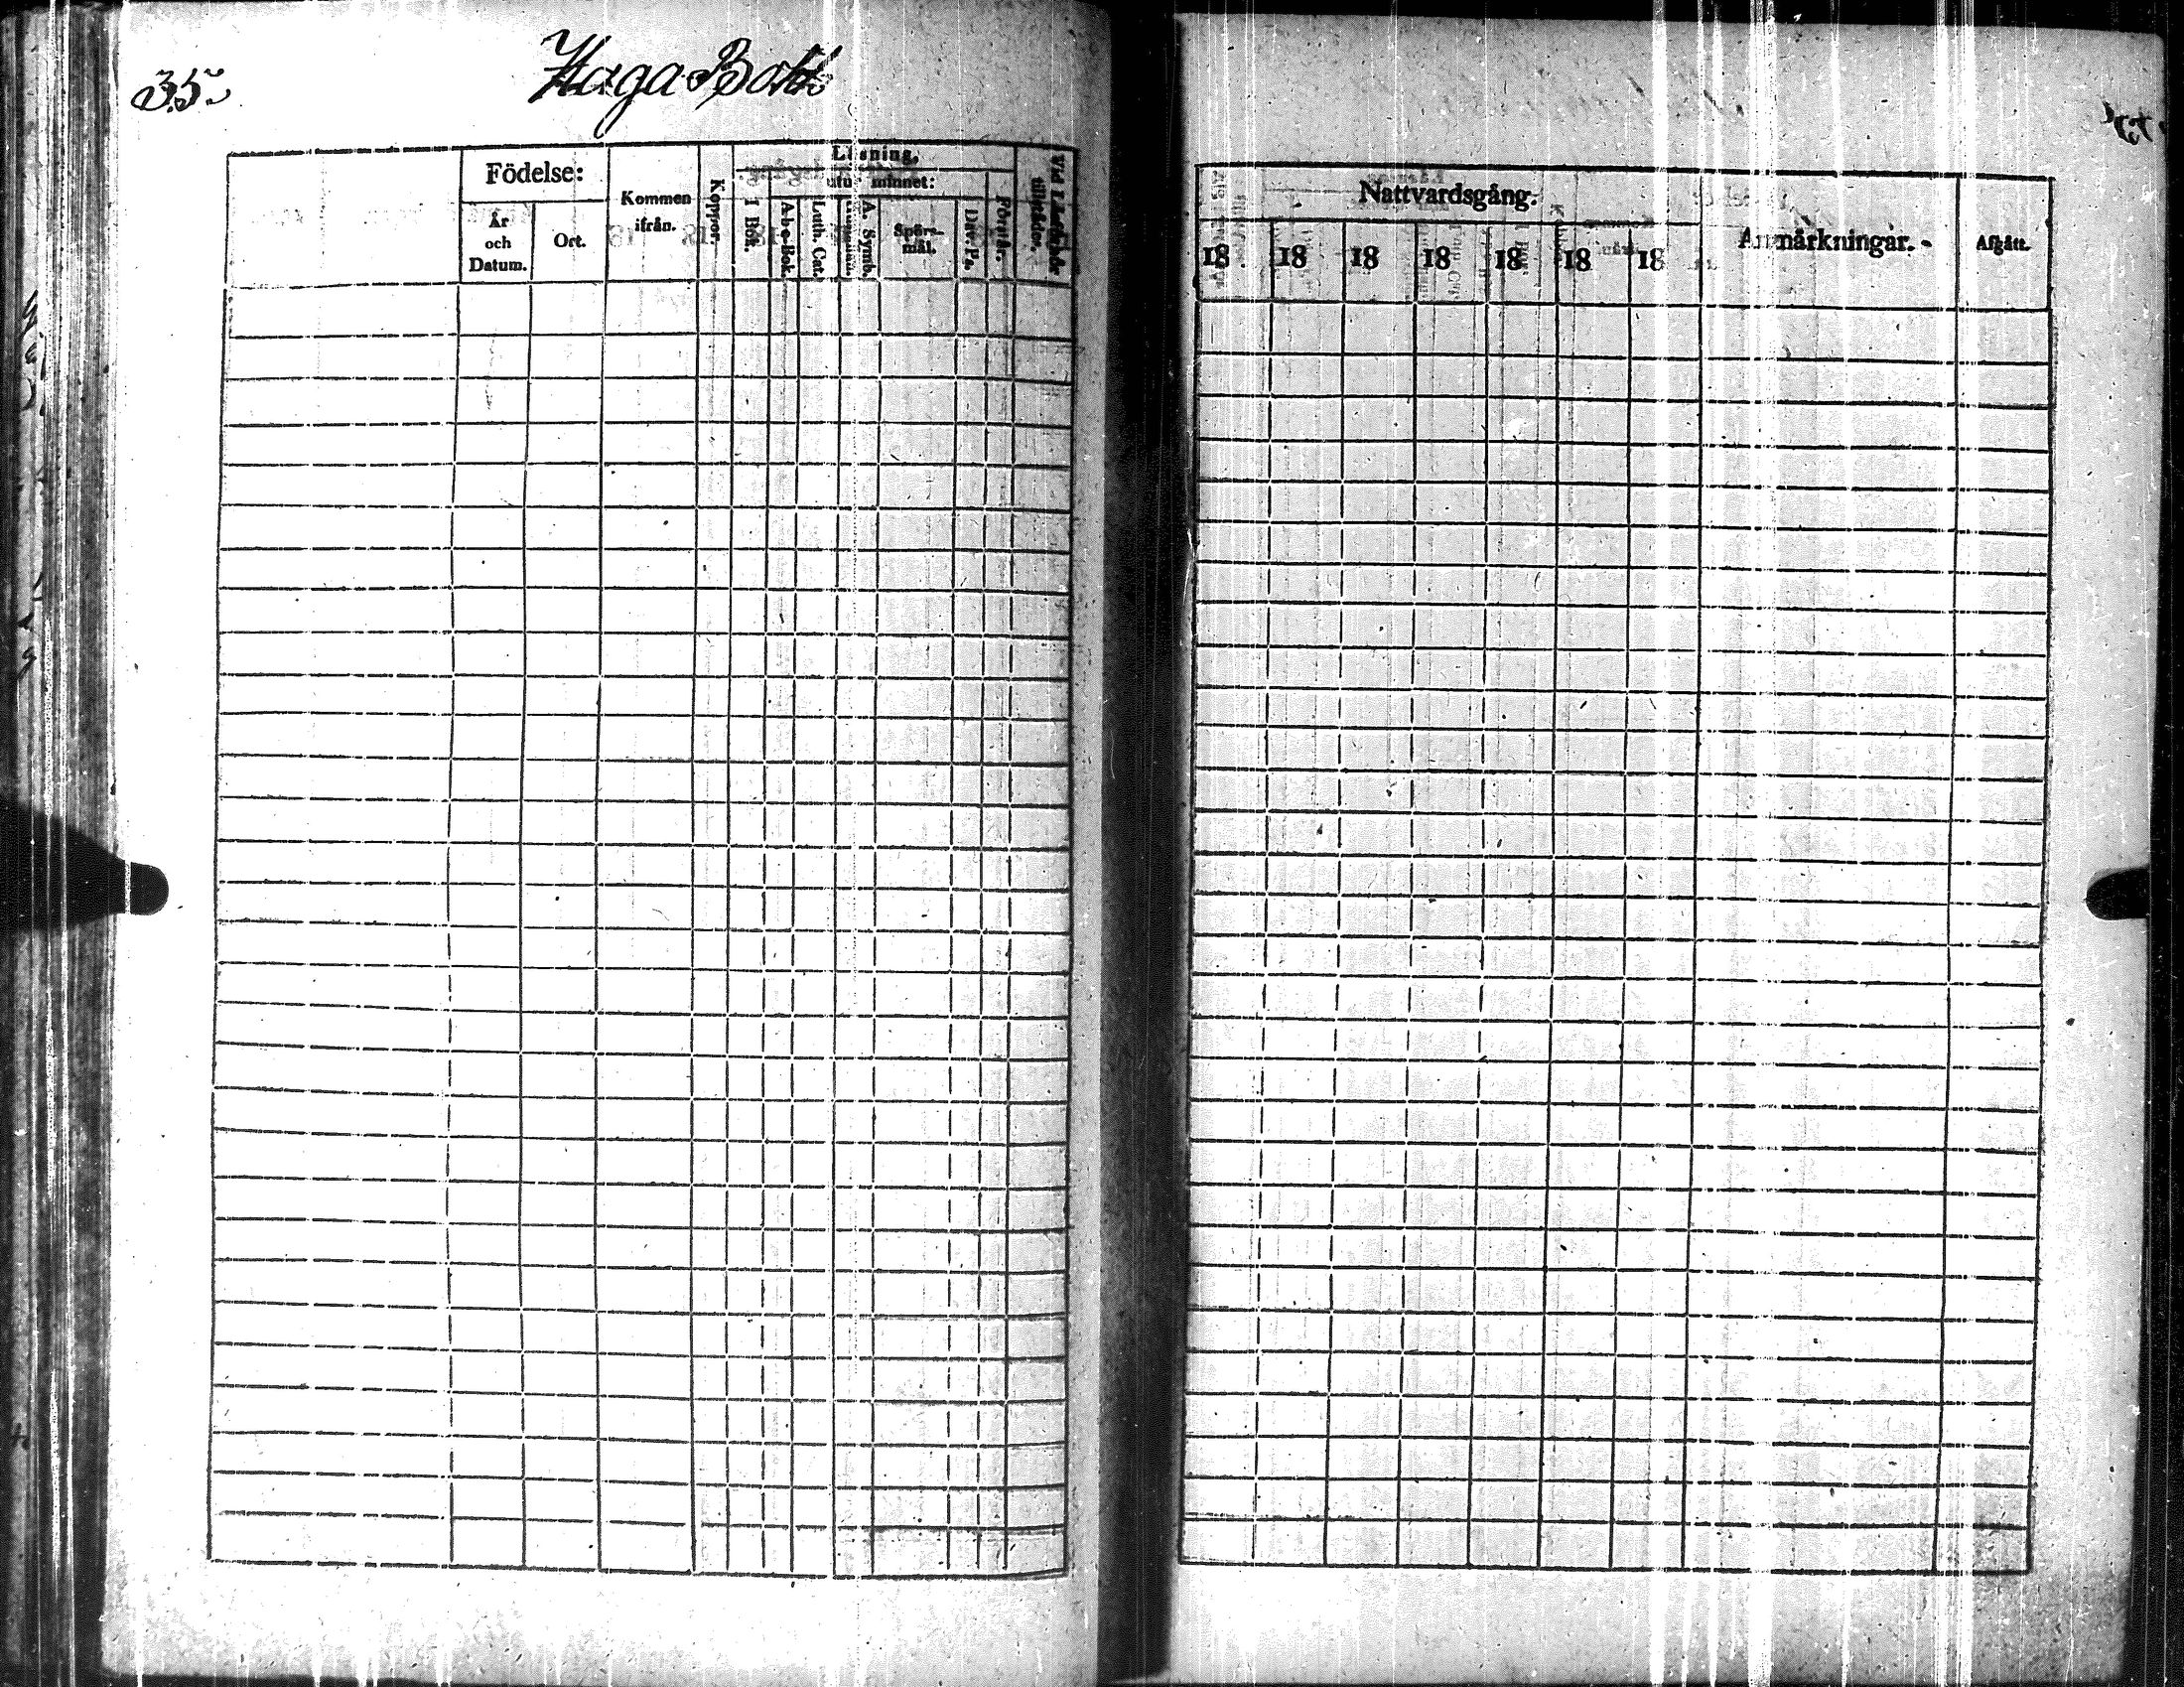 35.
Haga Bohl
Födelse:
År
och
Datum.
Ort.
Kommen
ifrån.
Koppor.
Läsning,
utur minnet:
I Bok.
A-b-c-Bok.
Luth. Cat.
A. Symb.
Spörs-
mål.
Dav. Ps.
Förstår.
Vid Läsförhör
tillstädes.
Nattvardsgång.
18 18 18 18 18 18 18
Anmärkningar.
Afgått.